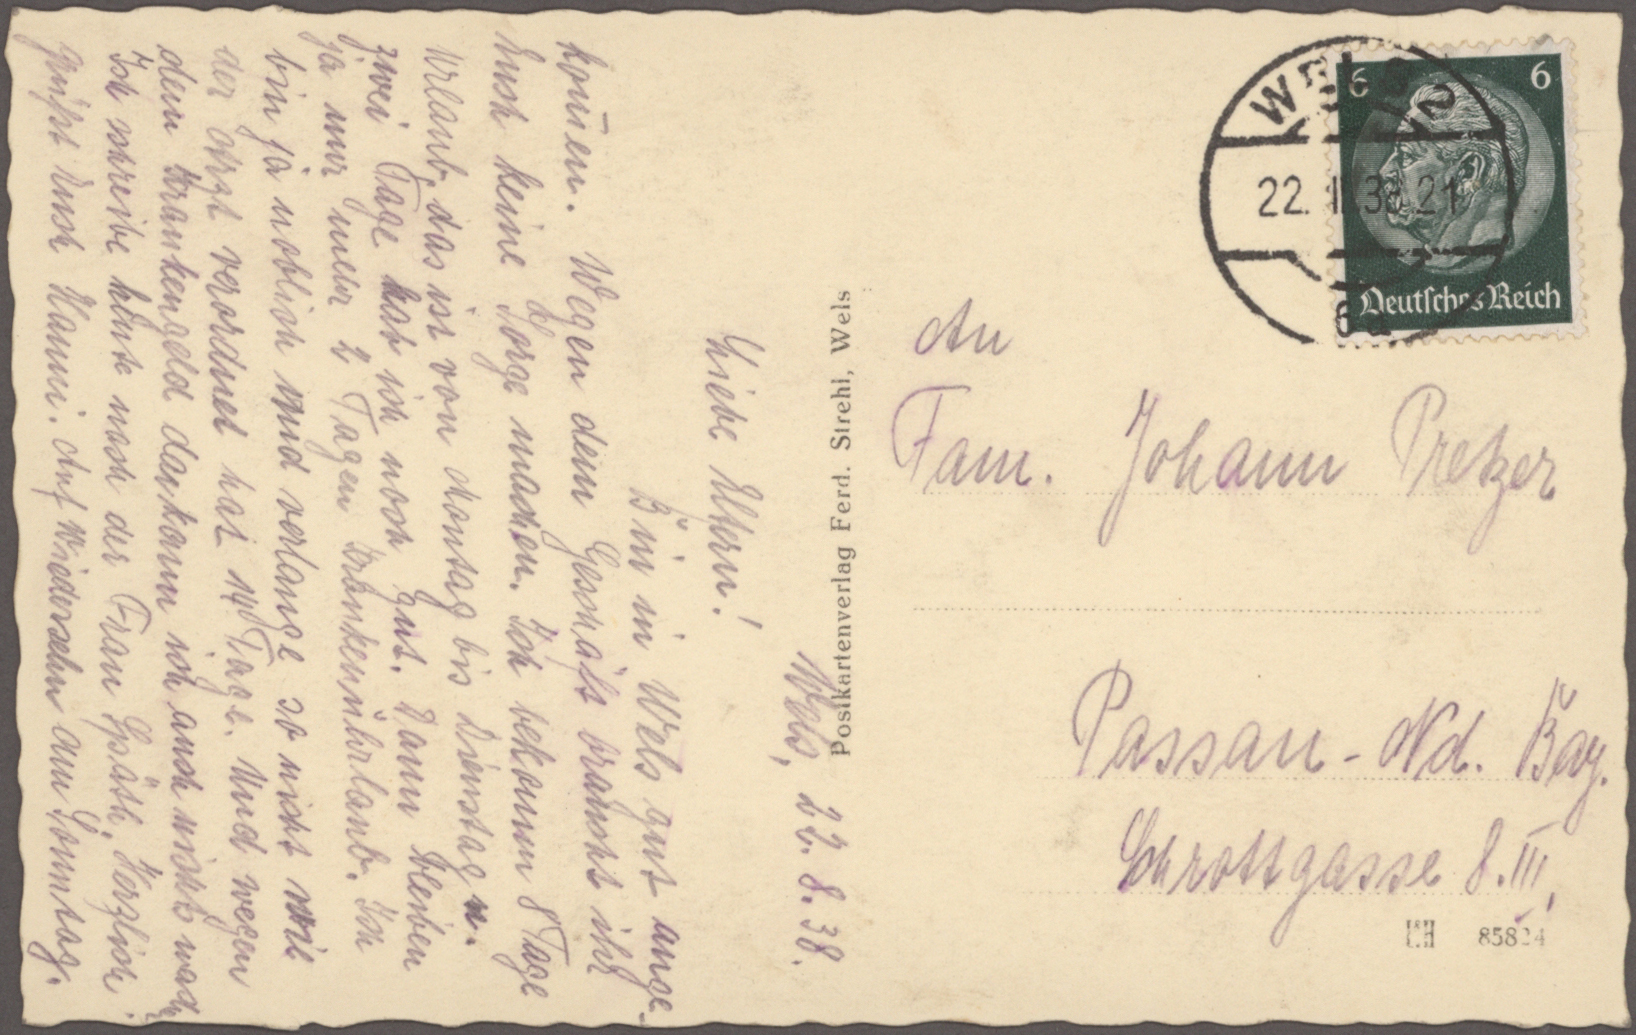 Wels, 22. 8. 38.
Liebe Eltern!
Bin in Wels gut ange-
kom̄en. Wegen dem Geschäft braucht ihr
Euch keine Sorge machen. Ich bekomm 8 Tage
Urlaub, das ist von Montag bis Dienstag u.
zwei Tage hab ich noch gut. Dann bleiben
ja nur mehr 2 Tagen Krankenurlaub. Ich
bin ja neblich und verlange so nicht wie
der Arzt verordnet hat 14 Tage. Und wegen
dem Krankengeld da kann ich auch nichts mach
Ich schreibe heute noch der Frau Späth. Herzlich
grüßt Euch Hanni. Auf Wiedersehn am Sonntag.
Postkartenverlag Ferd. Strehl, Wels
WELS 2
22. 38. 21
6 6
Deutsches Reich
An
Fam. Johann Pretzer
Passau - Nd. Bay.
Schrottgasse 8. III.
85824